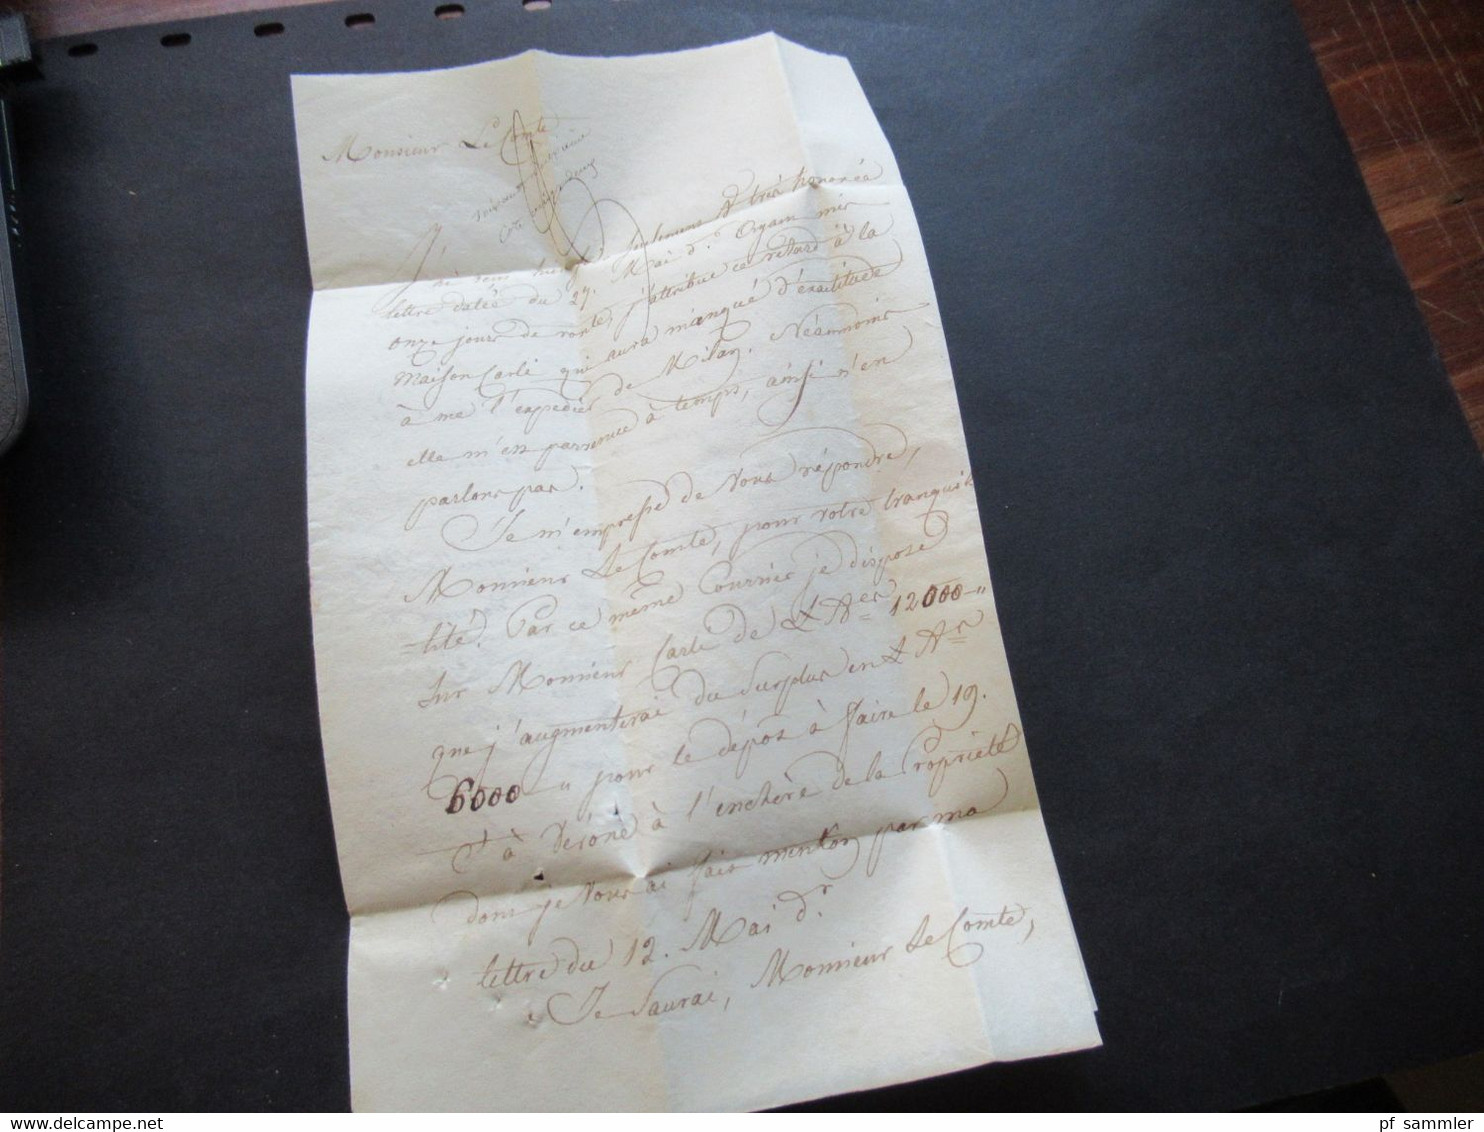 Monsieur Le Comte
J'ai reçu hier seulement V. très honorée
lettre datée du 29. Mai d.º Ayant mis
onze jours de route, j'attribue ce retard à la
Maison Carli qui aura manqué d'éxactitude
à me l'expedier de Milan. Néanmoins
elle m'est parvenue à temps, ainsi n'en
parlons pas.
Je m'empresse de Vous répondre,
Monsieur Le Comte, pour votre tranquil=
=lité. Par ce même Courrier je dispose
sur Monsieur Carli de £ A.es 12000 "
que j'augmenterai du Surplus en £ A.s
6000 " pour le dépos à faire le 19.
Ct à Vérone à l'enchère de la Propriété
dont je Vous ai fait mention par ma
lettre du 12. Mai d.r
Je Saurai, Monsieur Le Comte,
pf sammler